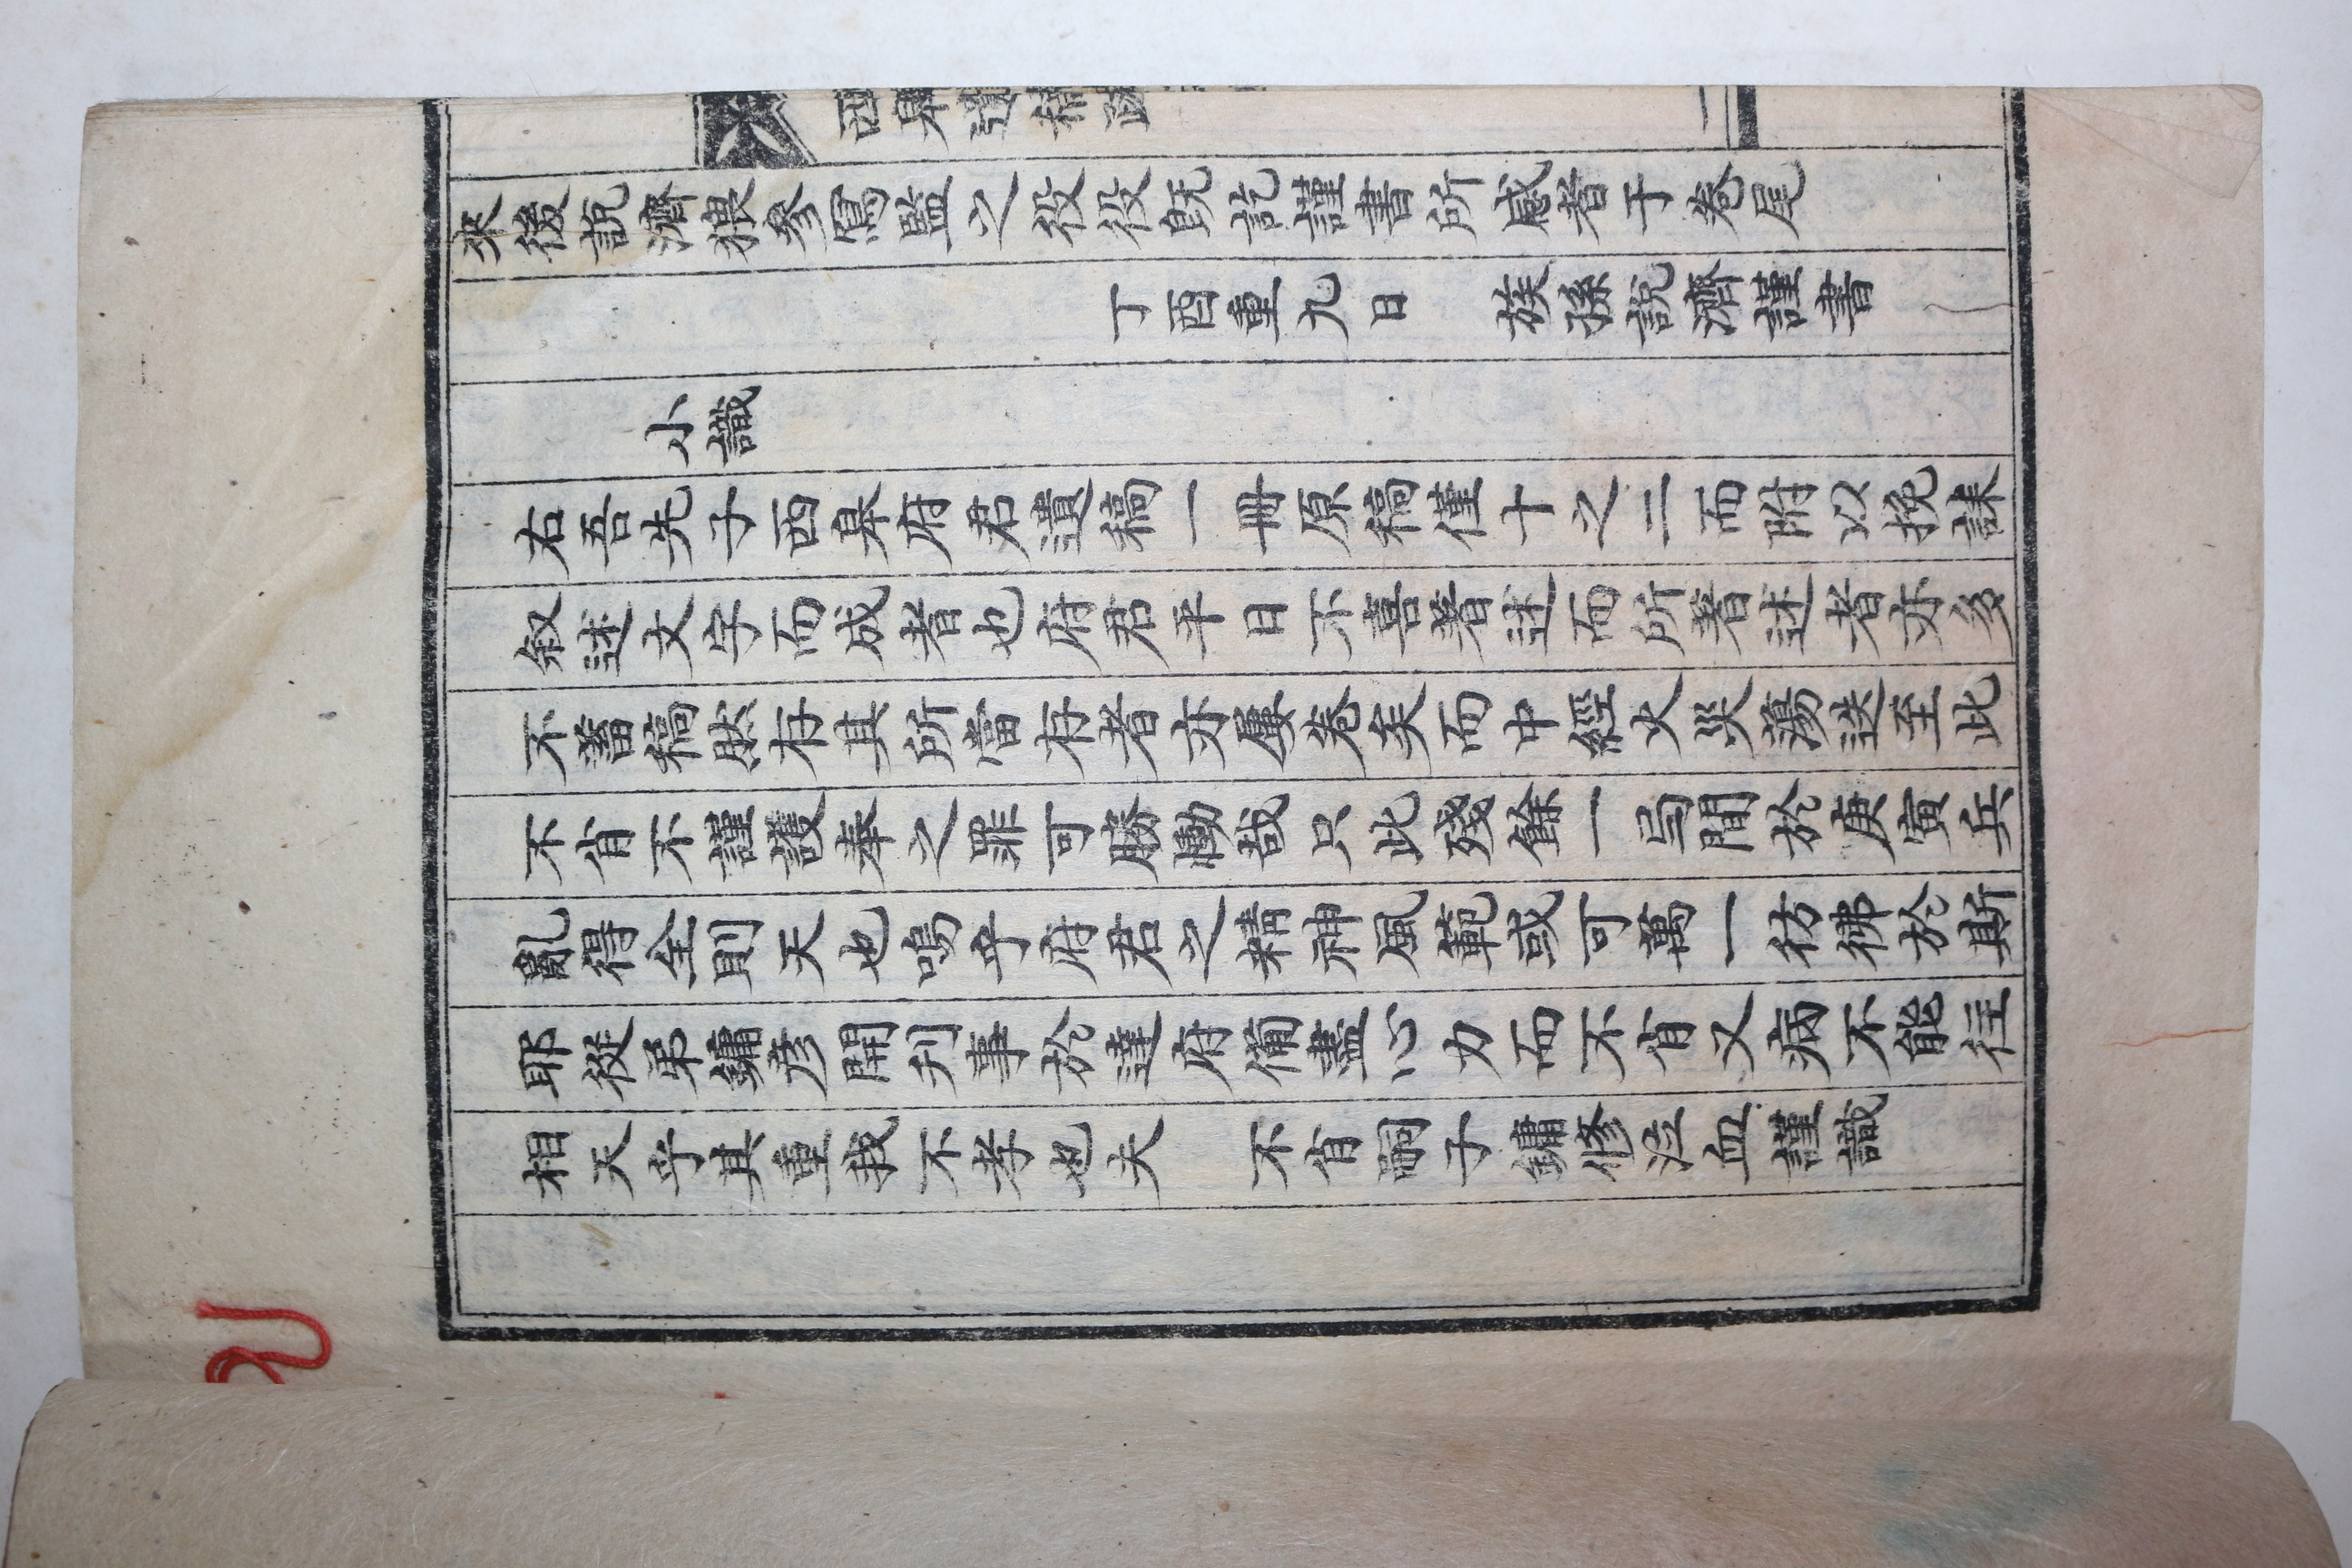 西皐遺稿跋
二
來後説濟猥參寫監之役役旣訖謹書所感者于卷尾
丁酉重九日 族孫説濟謹書
小識
右吾先子西皐府君遺稿一冊原稿僅十之二而附以挽誄
叙述文字而成者也府君平日不喜著述而所著述者亦多
不蓄稿然存其所當存者亦屢卷矣而中經火災蕩迭至此
不肖不謹護奉之罪可勝慟哉只此殘餘一局間於庚寅兵
亂得全則天也嗚乎府君之精神風範或可萬一彷彿於斯
耶從弟鏞彦開刋事於達府備盡心力而不肖又病不能往
相天乎其重我不孝也夫 不肖嗣子鏞修泣血謹識